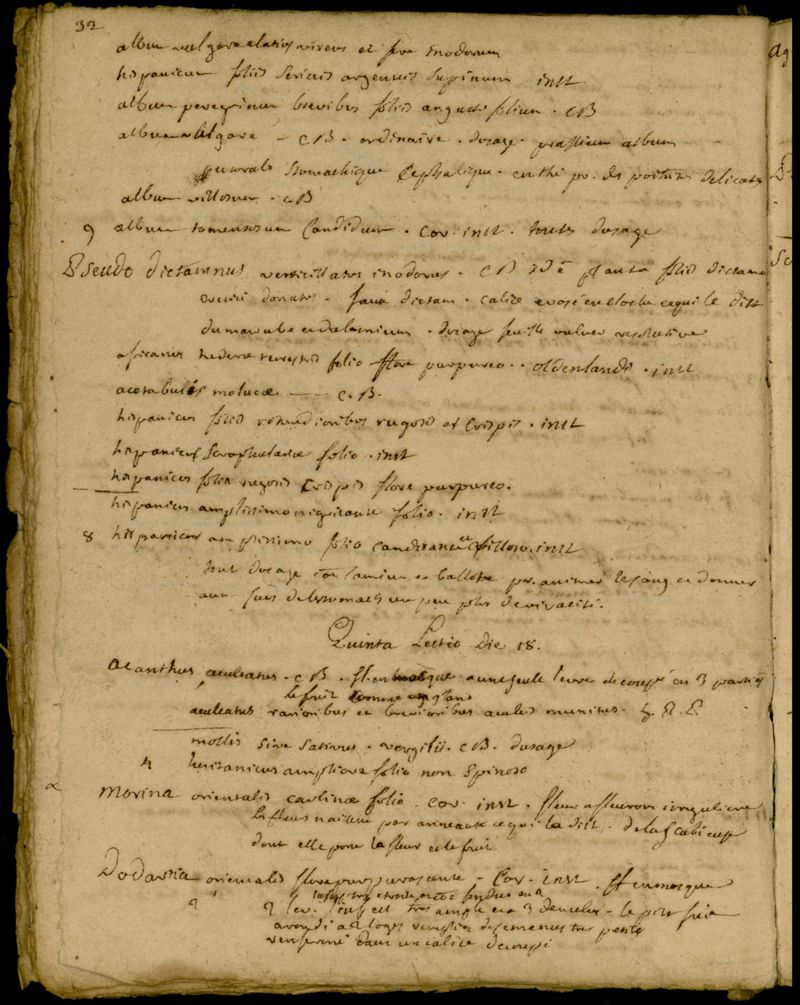 32
album vulgare elatius virens et fere inodorum
hispanicum foliis sericeis argenteis supinum inst
album peregrinum brevibus foliis angusti folium . CB
album vulgare – CB . ordinaire . dusage . prassium album
stomachique cephalique . en thé pr. des poitrines delicates
album villosum . CB
9 album tomentosum candidum . Cor . inst . touts dusage
Pseudo dictamnus verticillatus inodorus . CB id ē planta foliis dictamni
cretici donata . faux dictam . calice evasé en cloche ce qui le dist
du marube et du lamium . dusage feuille vulner resolutive
africanus hederæ terrestris folio flore purpureo . . oldenlandi . inst
acetabulis moluccæ —— C. B.
hispanicus foliis rotundioribus rugosis et crispis . inst
hispanicus scrophulariæ folio . inst
hispanicus foliis rugosis crispis flore purpureo .
hispanicus amplissimo nigricante folio . inst
8 hispanicus amplissimo folio candicante et villoso . inst
tout dusage côe lamium et ballote pr. animer le sang et donner
aux sucs de lestomach un peu plus de vivacité .
Quinta Lectio Die 18.
Acanthus aculeatus . CB . fl. en masque a une seule levre decoupé en 3 parties
le fruit comme un gland
aculeatus rarioribus et brevioribus aculeis munitus . h. R. P.
mollis sive sativus . virgilii . CB . dusage
4 lusitanicus ampliore folio non spinoso
Morina orientalis carlinæ folio . Cor . inst . fleur a fleuron irreguliere
les fleurs naissent par anneaux ce qui la dist . de la scabieuse
dont elle porte la fleur et le fruit
Dodartia orientalis flore purpurascente – Cor . inst . fl en masque
2 lev . linf est tres ample en 3 dentelée – le pist fruit
arondi a 2 loges remplies de semences tres petites
renfermé dans un calice decoupé